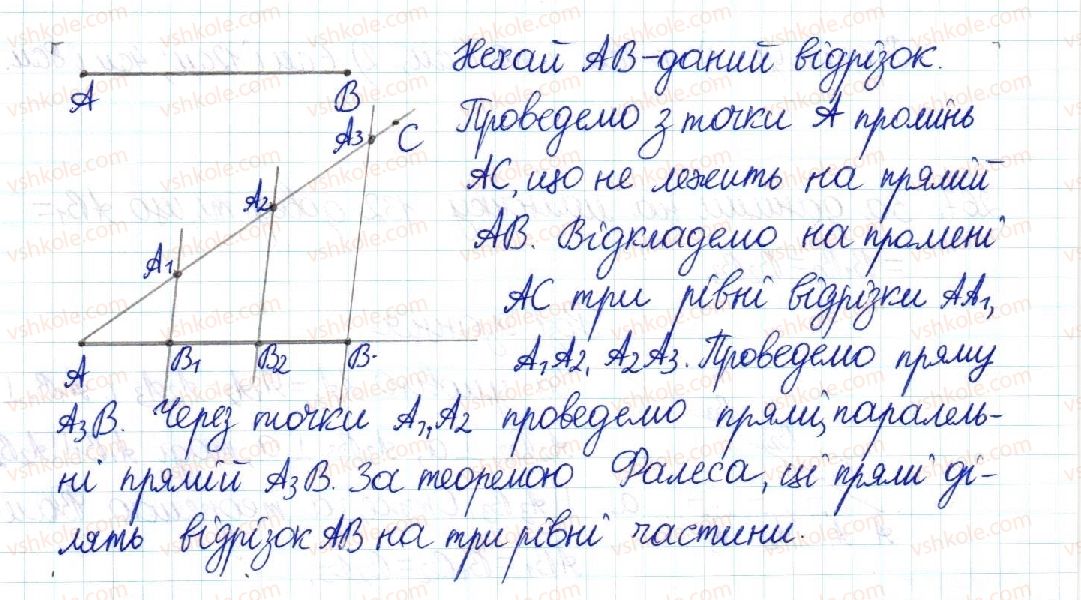 Нехай AB-даний відрізок.
A B
Проведемо з точки A промінь
A3 C
AC, що не лежить на прямій
A2
AB. Відкладемо на промені
A1
AC три рівні відрізки AA1,
A1A2, A2A3. Проведемо пряму
A B1 B2 B
A3B. Через точки A1, A2 проведемо прямі, паралель-
ні прямій A3B. За теоремою Фалеса, ці прямі ді-
лять відрізок AB на три рівні частини.
vshkole.com